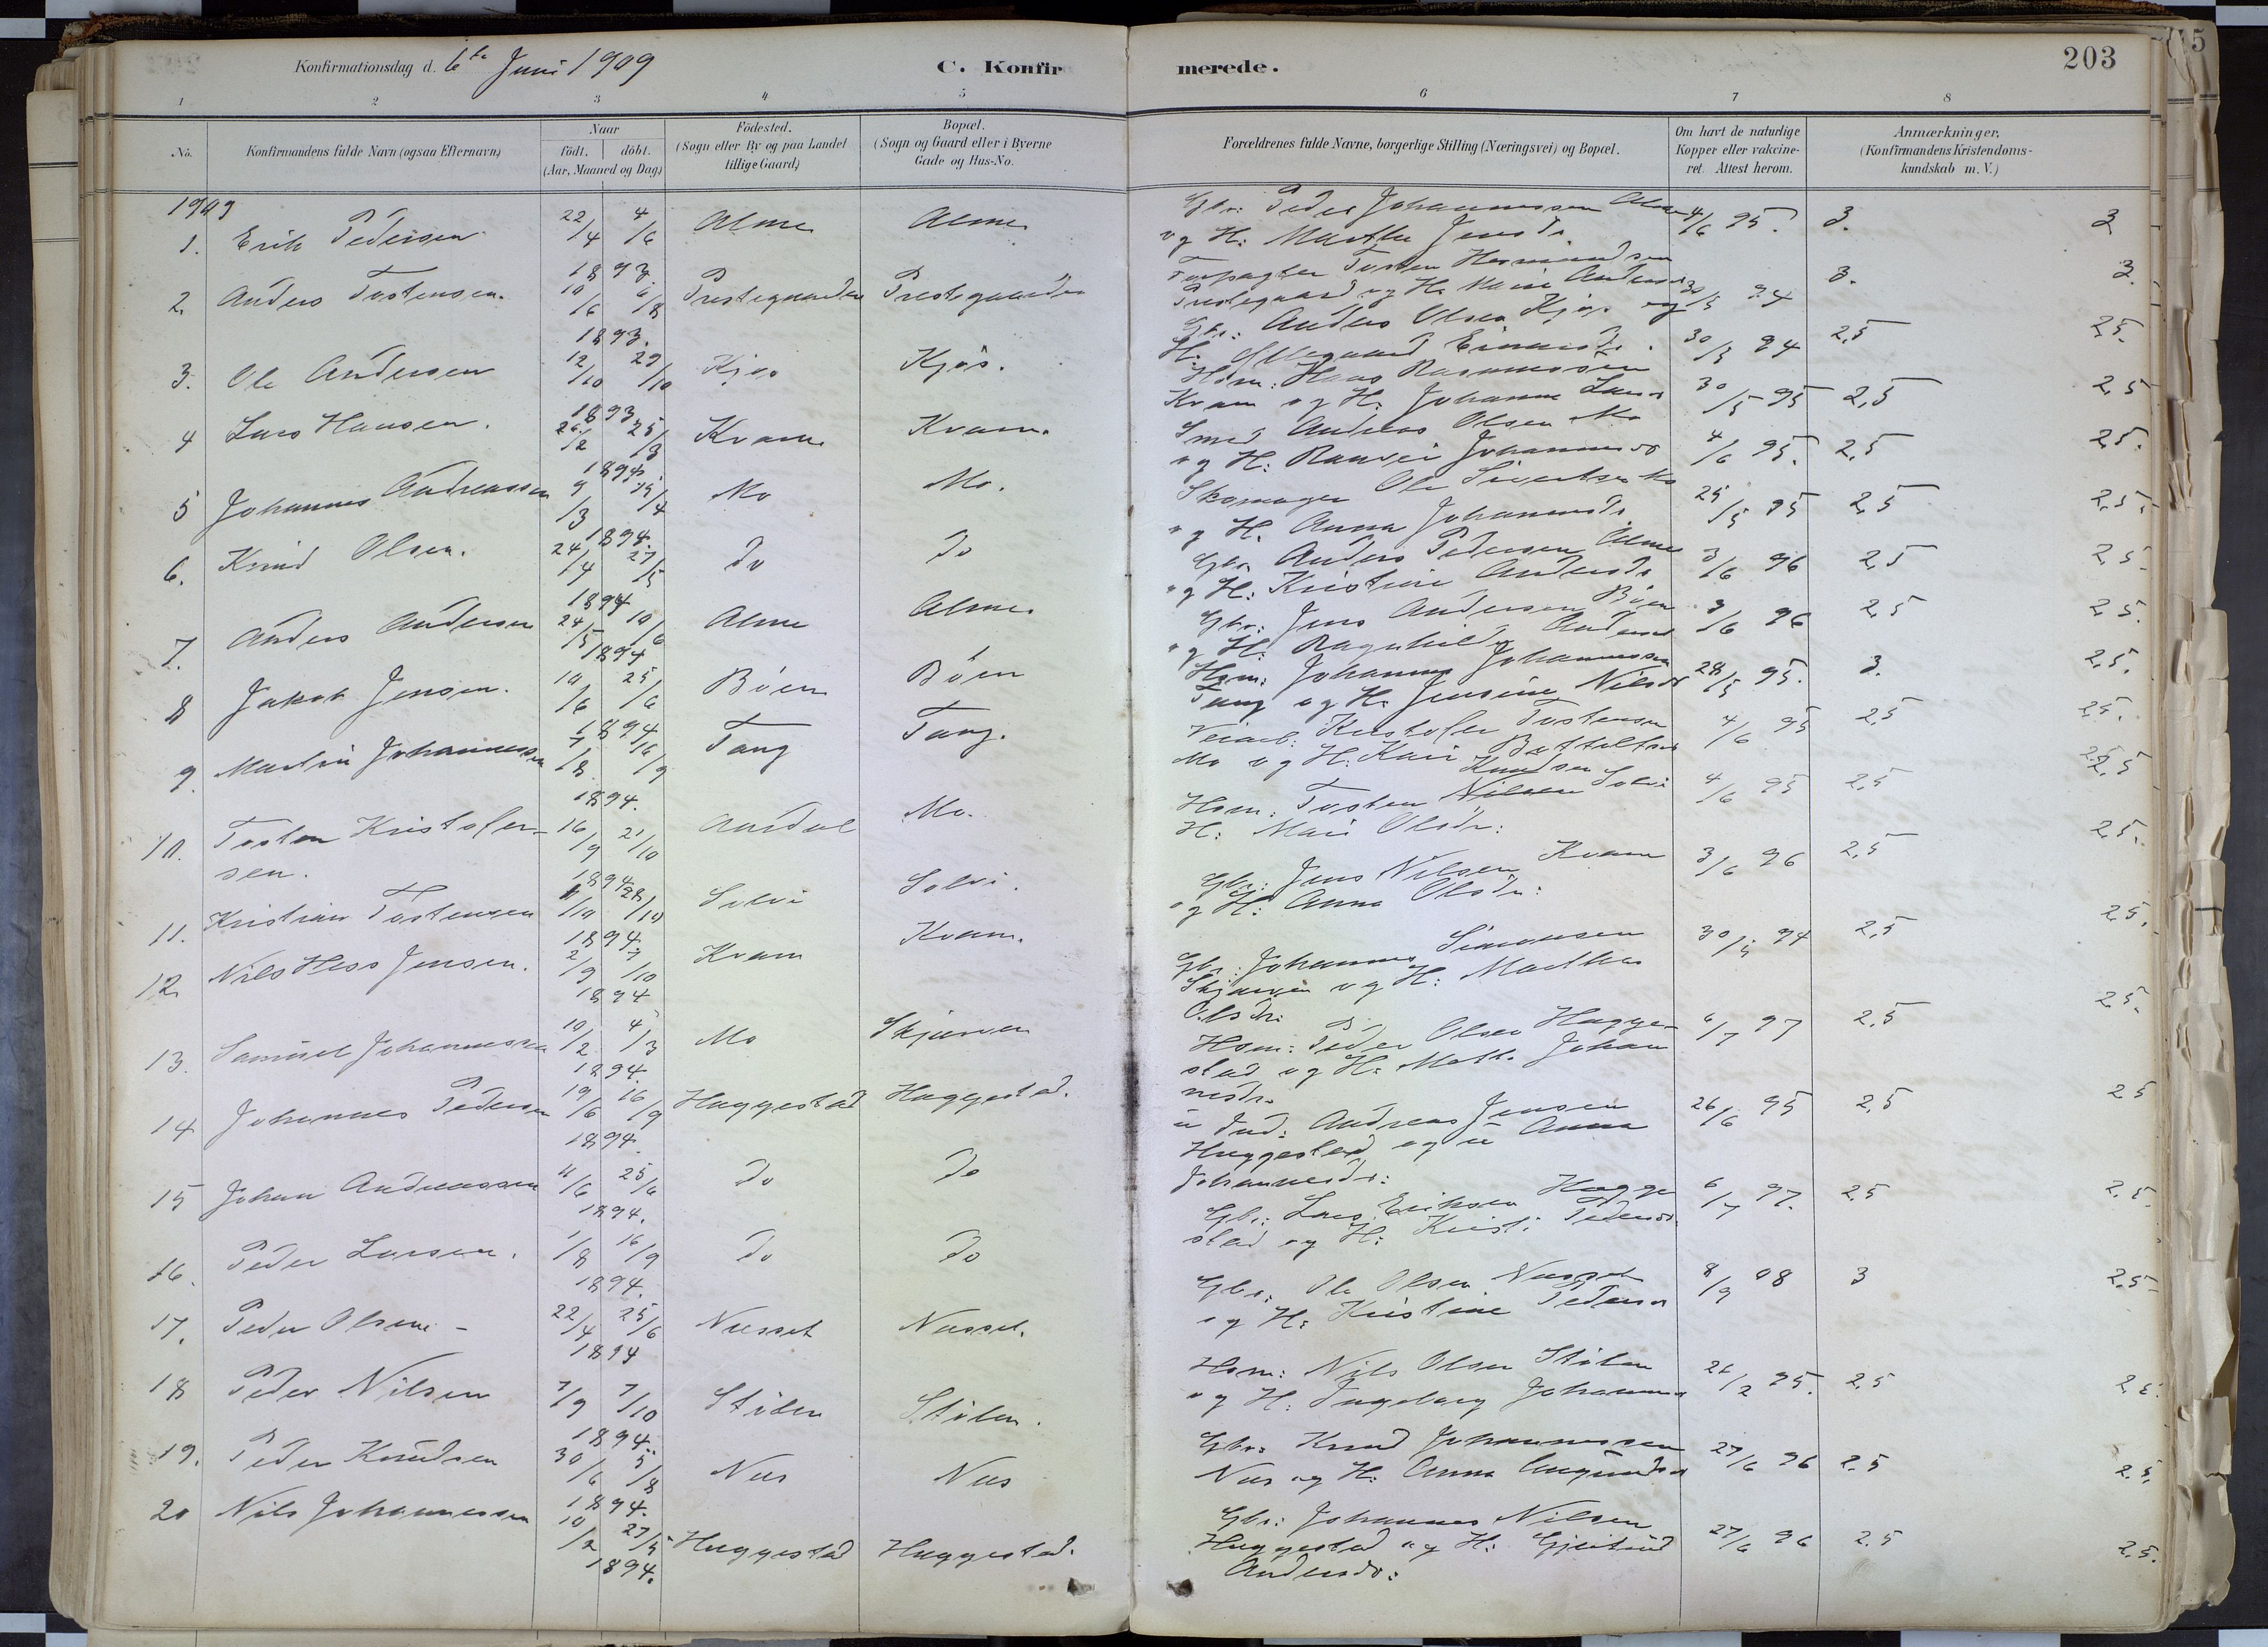 Konfirmationsdag d. 6te Juni 1909
C. Konfirmerede.
203
1 2 3 4 5 6 7 8
No.
Konfirmandens fulde Navn (ogsaa Efternavn)
Naar
födt. döbt.
(Aar, Maaned og Dag.)
Födested.
(Sogn eller By og paa Landet
tillige Gaard.)
Bopæl.
(Sogn og Gaard eller i Byerne
Gade og Hus-No.
Forældrenes fulde Navne, borgerlige Stilling (Næringsvei) og Bopæl.
Om havt de naturlige
Kopper eller vakcine-
ret. Attest herom.
Anmærkninger.
(Konfirmandens Kristendoms-
kundskab m. V.)
1909
1. Erik Pedersen 22/4 4/6 1893 Alme Alme
Gbr: Peder Johannessen Alme
og H: Marthe Jensdr. 4/6 95. 3. 3
2. Anders Tostensen. 10/6 6/8 1893. Prestegaarden Prestegaarden
Forpagter Tosten Hermundsen
Prestegaard og H. Mari Andersd 30/5 94 3. 3.
3. Ole Andersen 12/10 29/10 1893 Kjøs Kjøs.
Gbr: Anders Olsen Kjøs og
H. Ollegaard Einarsdr. 30/5 94 2,5 2,5.
4 Lars Hansen. 26/2 25/3 1894. Kvam Kvam.
Hsm: Hans Rasmussen
Kvam og H: Johanne Larsd 30/5 95 2,5 2,5
5 Johannes Andreassen 9/3 15/4 1894. Mo Mo.
Smed Andreas Olsen Mo
og H: Ranvei Johannesd 4/6 95. 2,5 2,5.
6. Knud Olsen. 24/4 27/5 1894 do do
Skomager Ole Sivertsen Mo
og H. Anna Johannesdr. 25/5 95 2,5 2,5.
7. Anders Andersen 24/5 10/6 1894 Alme Alme
Gbr. Anders Pedersen Alme
og H: Kristine Andersdr 3/6 96 2,5 2,5.
8 Jakob Jensen. 10/6 25/6 1894 Böen Böen
Gbr: Jens Andersen Böen
og H: Ragnhild Andersd 3/6 96 2,5 2,5.
9. Martin Johannessen 7/8 16/9 1894. Tang Tang.
Hsm: Johannes Johannessen
Tang og H. Jensine Nilsd 28/5 95. 3. 2,5.
10. Tosten Kristofer-
sen. 16/9 21/10 1894 Aurdal Mo.
Veiarb: Kristofer Tostensen
Mo og H: Kari Bottolfsd 4/6 95 2,5 2,5.
11. Kristian Tostensen 1/10 28/10 1894. Solvi Solvi.
Hsm: Tosten Knudsen Solvi
H: Mari Olsdr: 4/6 95 2,5 2,5
12. Nils Hess Jensen. 2/9 7/10 1894 Kvam Kvam.
Gbr: Jens Nilsen Kvam
og H: Anna Olsdr: 3/6 96 2,5 2,5.
13. Samuel Johannessen 10/2 4/3 1894. Mo Skjerven
Gbr: Johannes Simonsen
Skjerven og H: Marthe
Olsdr: 30/5 94 2,5 2,5.
14 Johannes Pedersen 19/6 16/9 1894. Huggestad Huggestad.
Hsm: Peder Olsen Hugge-
stad og H: Mette Johan
nesdr. 6/7 97 2,5 2,5.
15 Johan Andreassen 11/6 25/6 1894. do do
Ind: Andreas Jensen
Huggestad og Anna
Johannesdr: 26/6 95 2,5 2,5
16. Peder Larsen. 1/8 16/9 1894. do do
Gbr: Lars Eriksen Hugge
stad og H: Kristi Pedersd. 6/7 97. 2,5 2,5.
17. Peder Olsen - 22/4 25/6 1894 Nusset Nusset.
Gbr: Ole Olsen Nusset
og H: Kristine Pedersd 8/9 08 3 2,5
18 Peder Nilsen 7/9 7/10 1894. Stölen Stölen.
Hsm: Nils Olsen Stölen
og H: Ingeborg Johannesd 26/2 95. 2,5 2,5.
19. Peder Knudsen 30/6 5/8 1894. Nus Nus
Gbr: Knud Johannessen
Nus og H: Anna Amundsd 27/6 96 2,5 2,5.
20 Nils Johannessen 10/2 27/5 1894. Huggestad Huggestad.
Gbr: Johannes Nilsen
Huggestad og H: Gjertrud
Andersdr: 27/6 96 2,5 2,5.